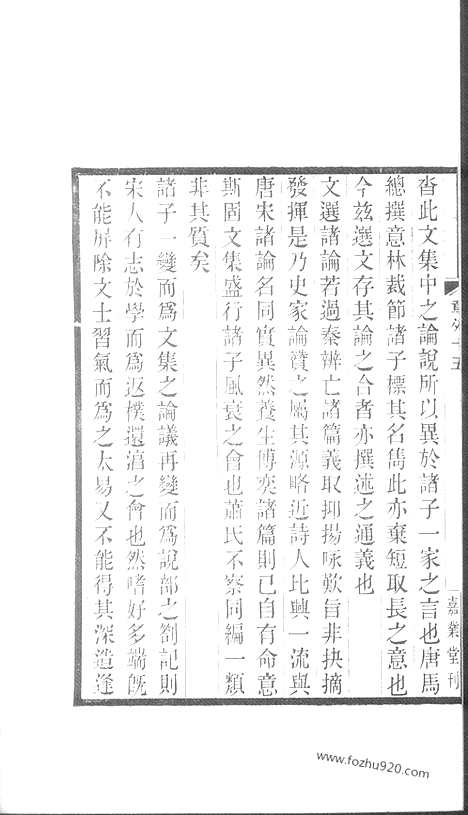 沓此文集中之論說所以異於諸子一家之言也唐馬
總撰意林裁節諸子標其名雋此亦棄短取長之意也
今茲選文存其論之合者亦撰述之通義也
文選諸論若過秦辨亡諸篇義取抑揚咏歎旨非抉摘
發揮是乃史家論贊之屬其源略近詩人比興一流與
唐宋諸論名同實異然養生博奕諸篇則已自有命意
斯固文集盛行諸子風衰之會也蕭氏不察同編一類
非其質矣
諸子一變而爲文集之論議再變而爲說部之劄記則
宋人有志於學而爲返樸還淳之會也然嗜好多端旣
不能屏除文士習氣而爲之太易又不能得其深造逢
章外十五
嘉業堂刊
www.fozhu920.com